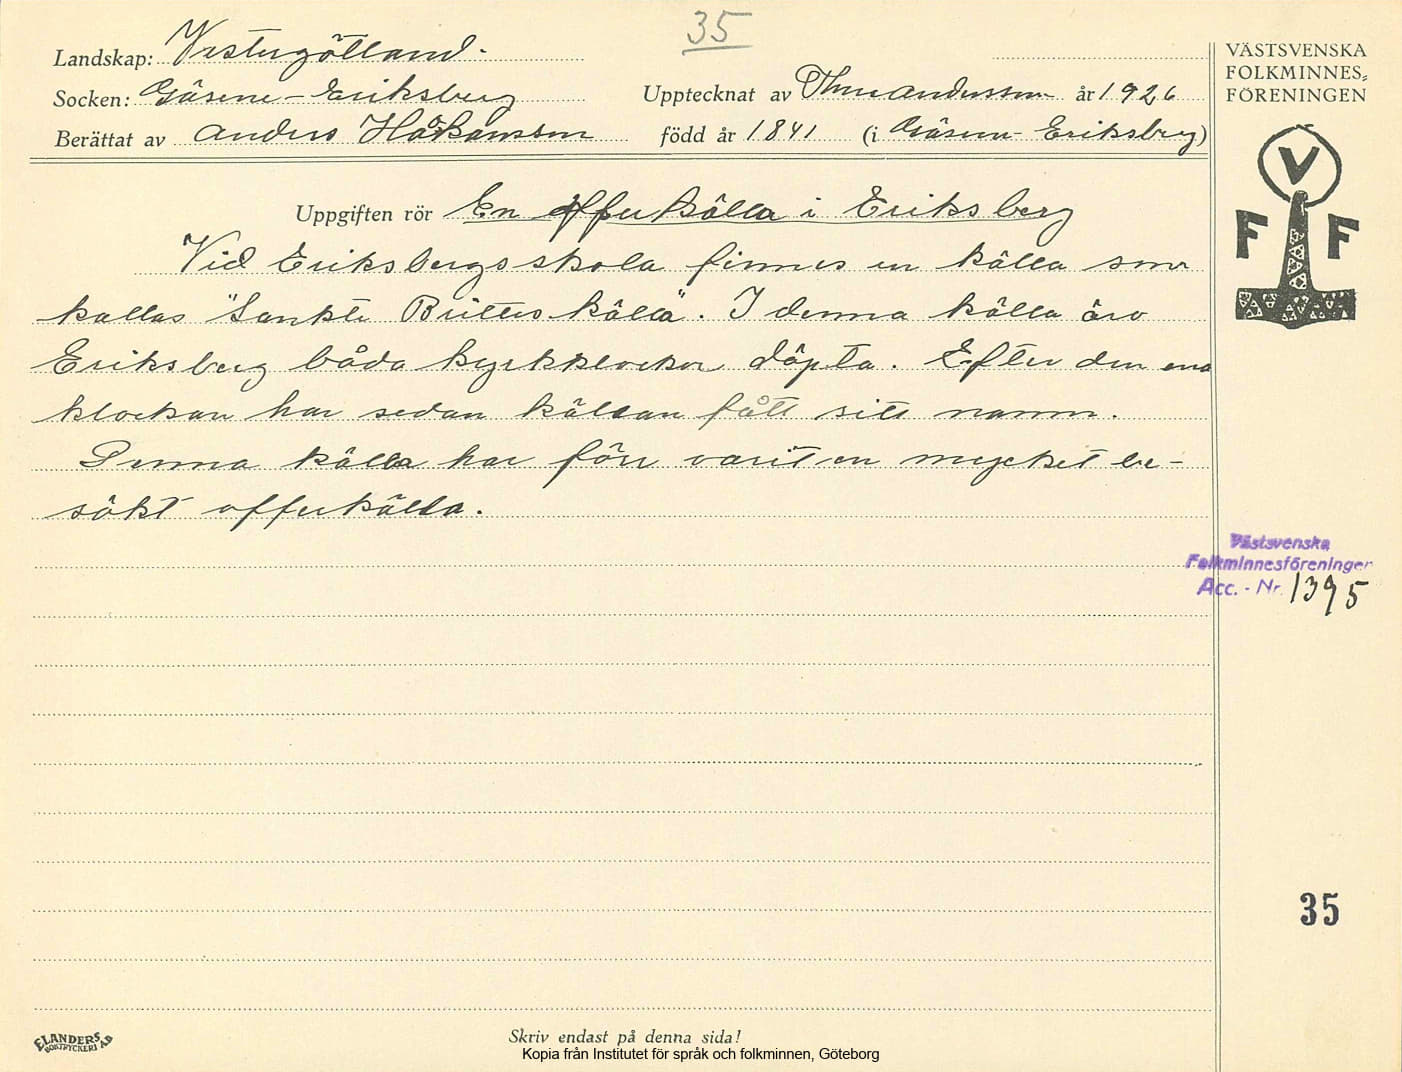 35
Landskap: Vestergötland.
Socken: Gäsene-Eriksberg
Upptecknat av Thure Andersson år 1926
Berättat av Anders Håkansson född år 1841 (i Gäsene-Eriksberg)
VÄSTSVENSKA
FOLKMINNES=
FÖRENINGEN
V
F F
Uppgiften rör En offerkälla i Eriksberg
Vid Eriksbergs skola finnes en källa som
kallas "Sankte Brittes källa". I denna källa äro
Eriksberg båda kyrkklockor döpta. Efter den ena
klockan har sedan källan fått sitt namn.
Denna källa har förr varit en mycket be-
sökt offerkälla.
Västsvenska
Folkminnesföreningen
Acc. - Nr. 1395
35
ELANDERS
BOKTRYCKERI AB
Skriv endast på denna sida!
Kopia från Institutet för språk och folkminnen, Göteborg